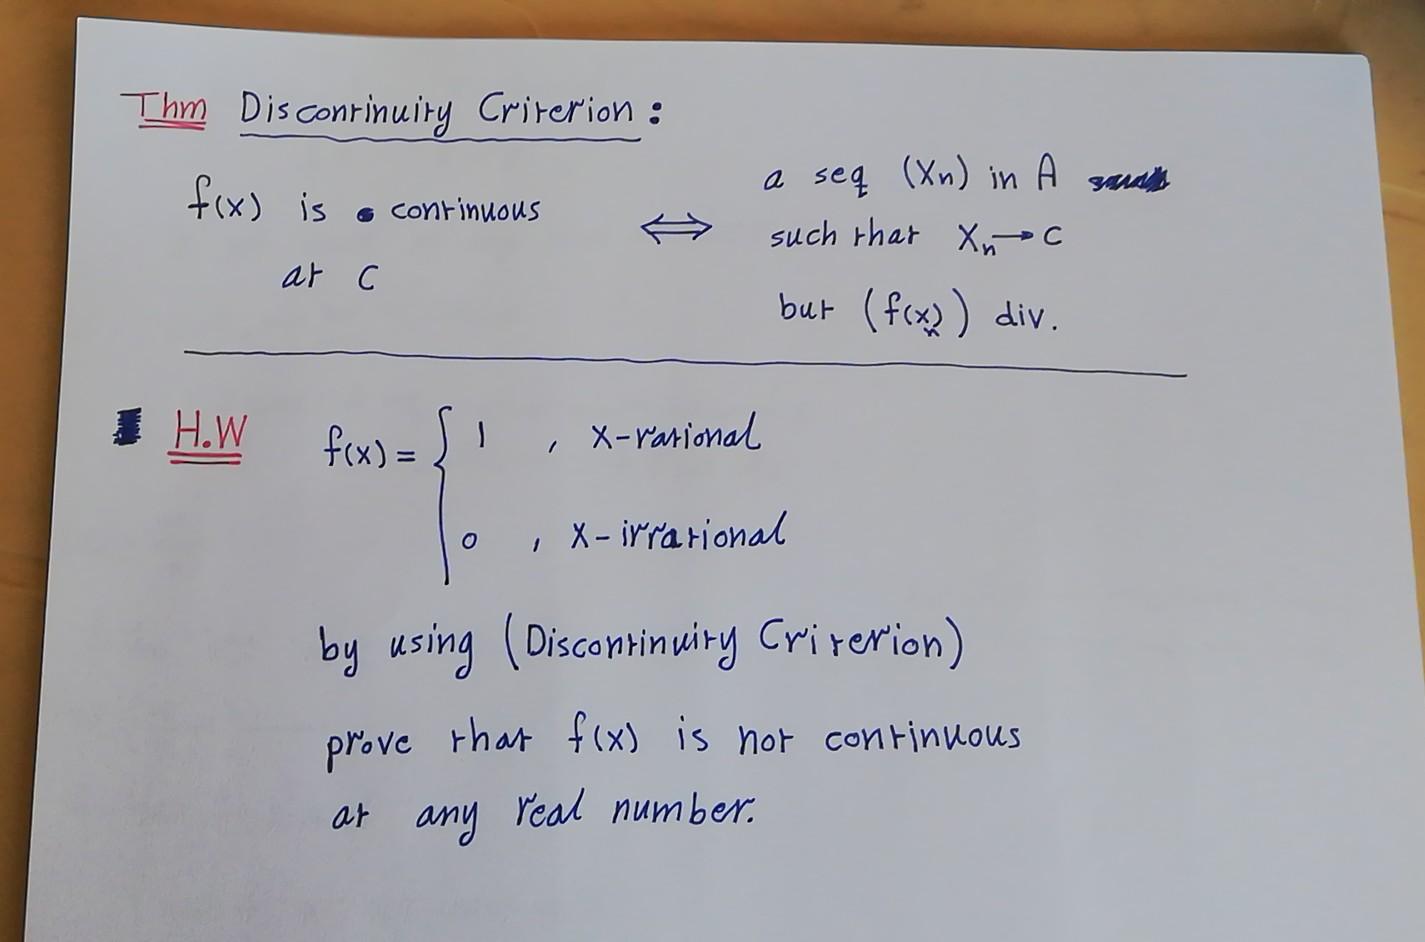 Thm Discontinuity Criterion:
f(x) is continuous
at c
⟺
a seq (Xn) in A
such that Xn→c
but (f(xn)) div.
H.W
f(x) = { 1 , x-rational
0 , x-irrational
by using (Discontinuity Criterion)
prove that f(x) is not continuous
at any real number.